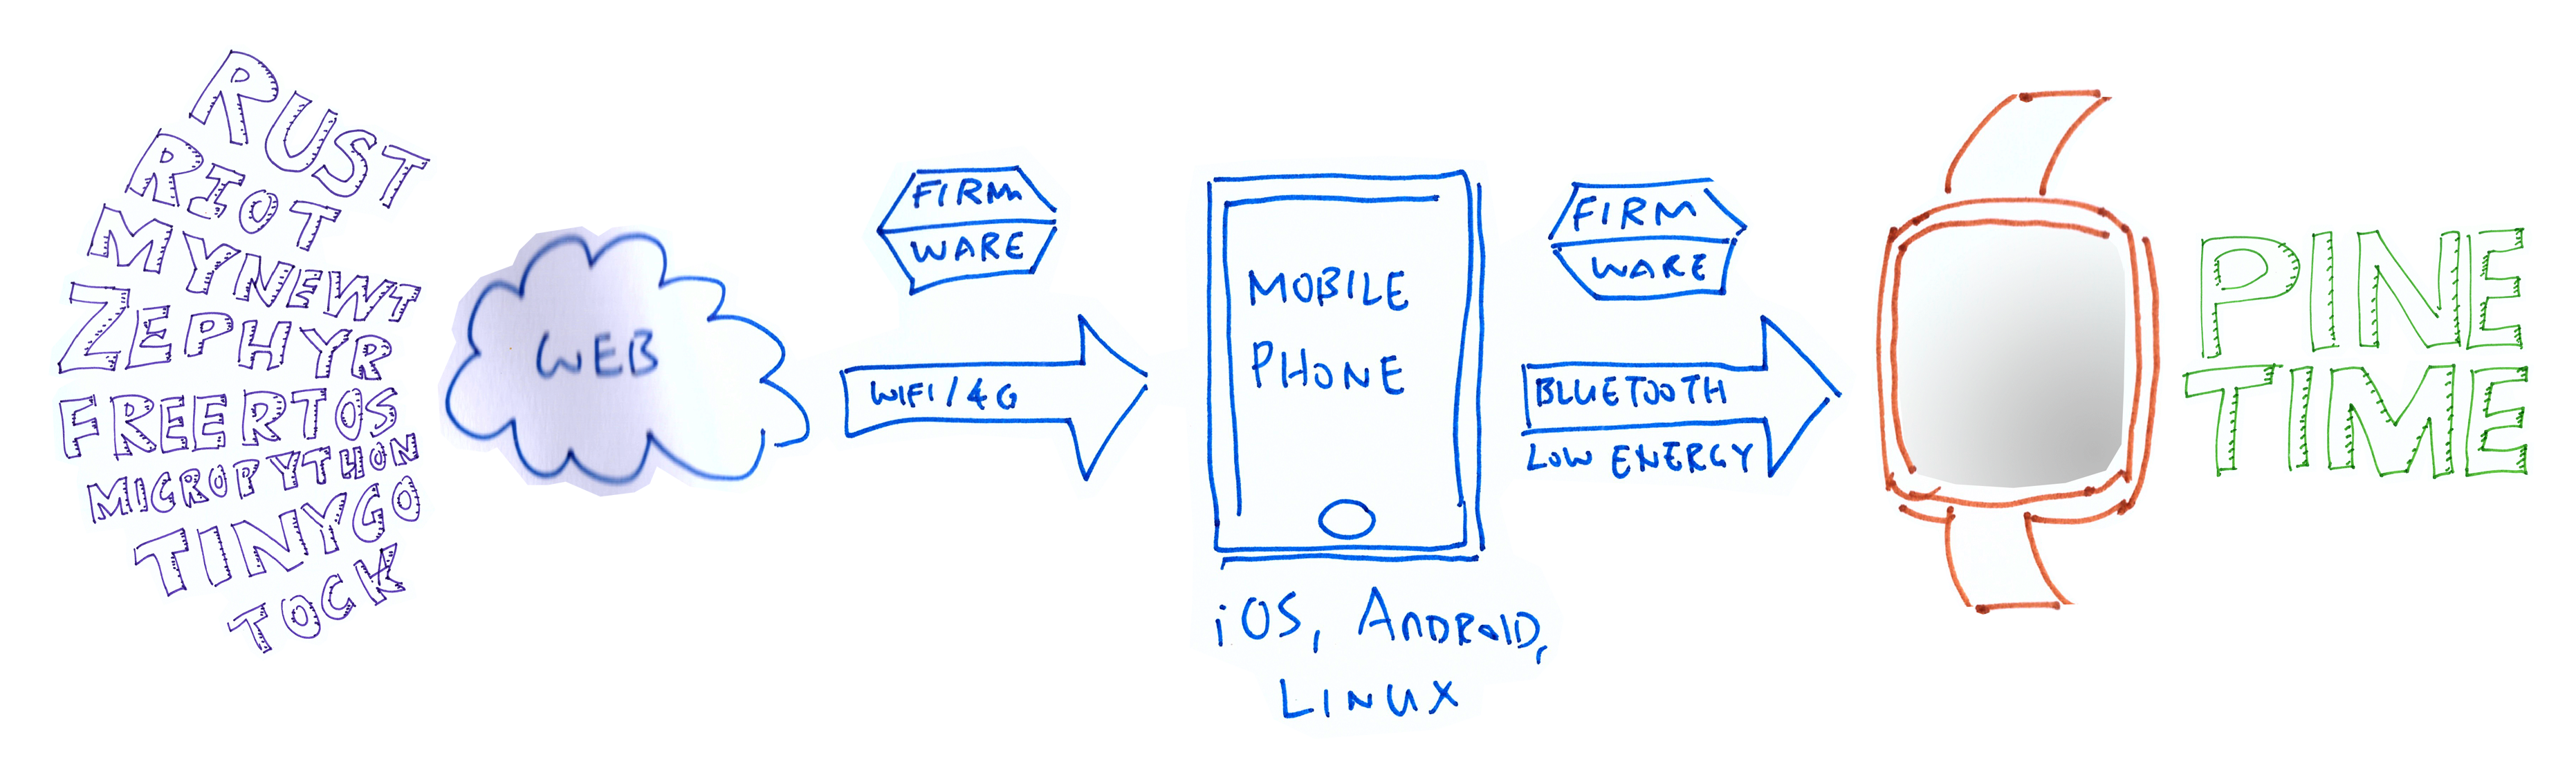 RUST
RIOT
MYNEWT
ZEPHYR
FREERTOS
MICROPYTHON
TINYGO
TOCK
WEB
FIRM
WARE
WIFI/4G
MOBILE
PHONE
iOS, ANDROID,
LINUX
FIRM
WARE
BLUETOOTH
LOW ENERGY
PINE
TIME